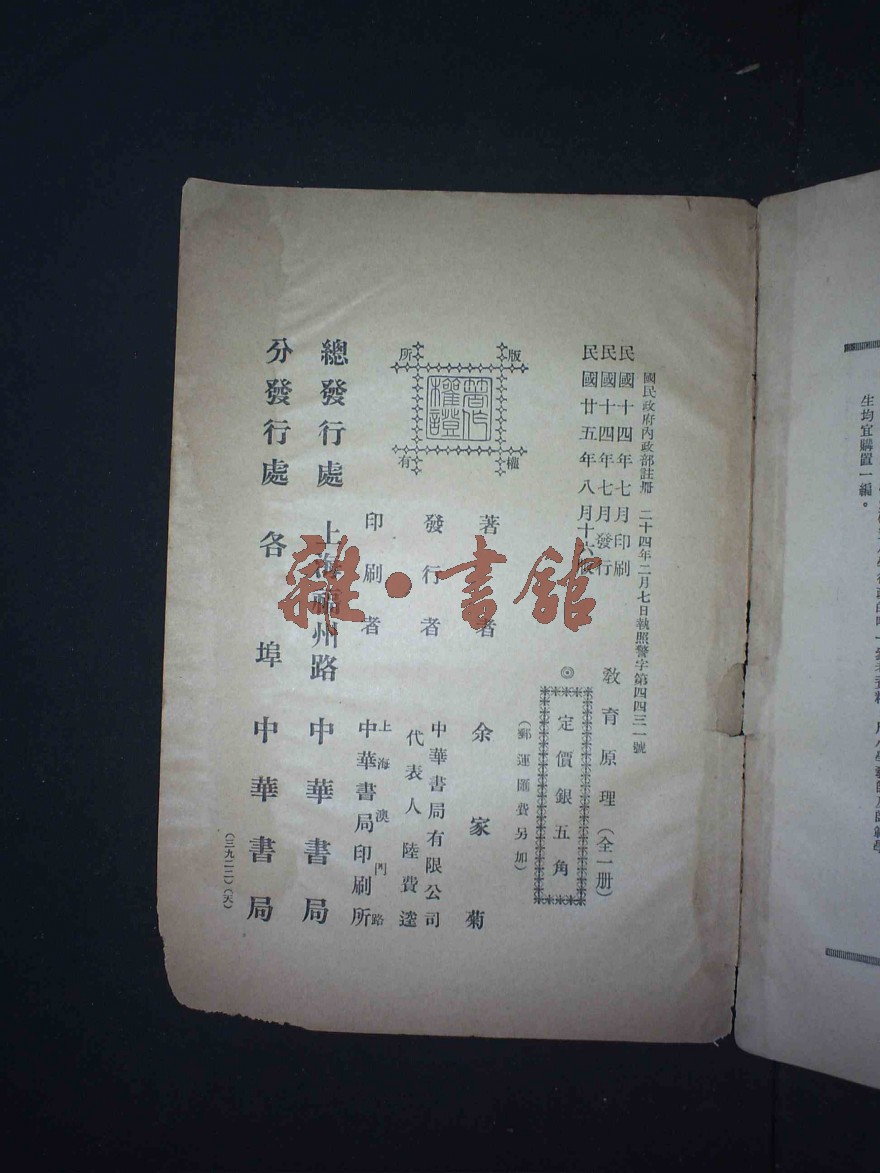 國民政府內政部註冊 二十四年二月七日執照警字第四四三一號
民國十四年七月印刷
民國十四年七月發行
民國廿五年八月十六版
教育原理（全一册）
◎
定價銀五角
（郵運匯費另加）
版權所有
著作權證
著者 余家菊
發行者 中華書局有限公司
代表人 陸費逵
印刷者 上海澳門路
中華書局印刷所
總發行處 上海福州路 中華書局
分發行處 各埠 中華書局
（三九二二）（天）
雜·書館
生均宜購置一編。